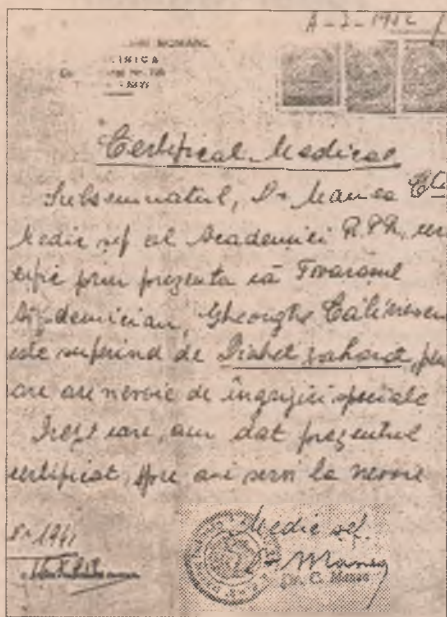 CLINICA
Certificat Medical
Subsemnatul, Dr Manea Ct
Medic șef al Academiei R.P.R., cer
tific prin prezenta că Tovarășul
Academician, Gheorghe Călinescu
este suferind de Diabet zaharat, pen
are are nevoie de îngrijiri speciale
Drept care, am dat prezentul
certificat, spre a-i servi la nevoie
Medic șef.
Dr Manea
Dr. C. Manea